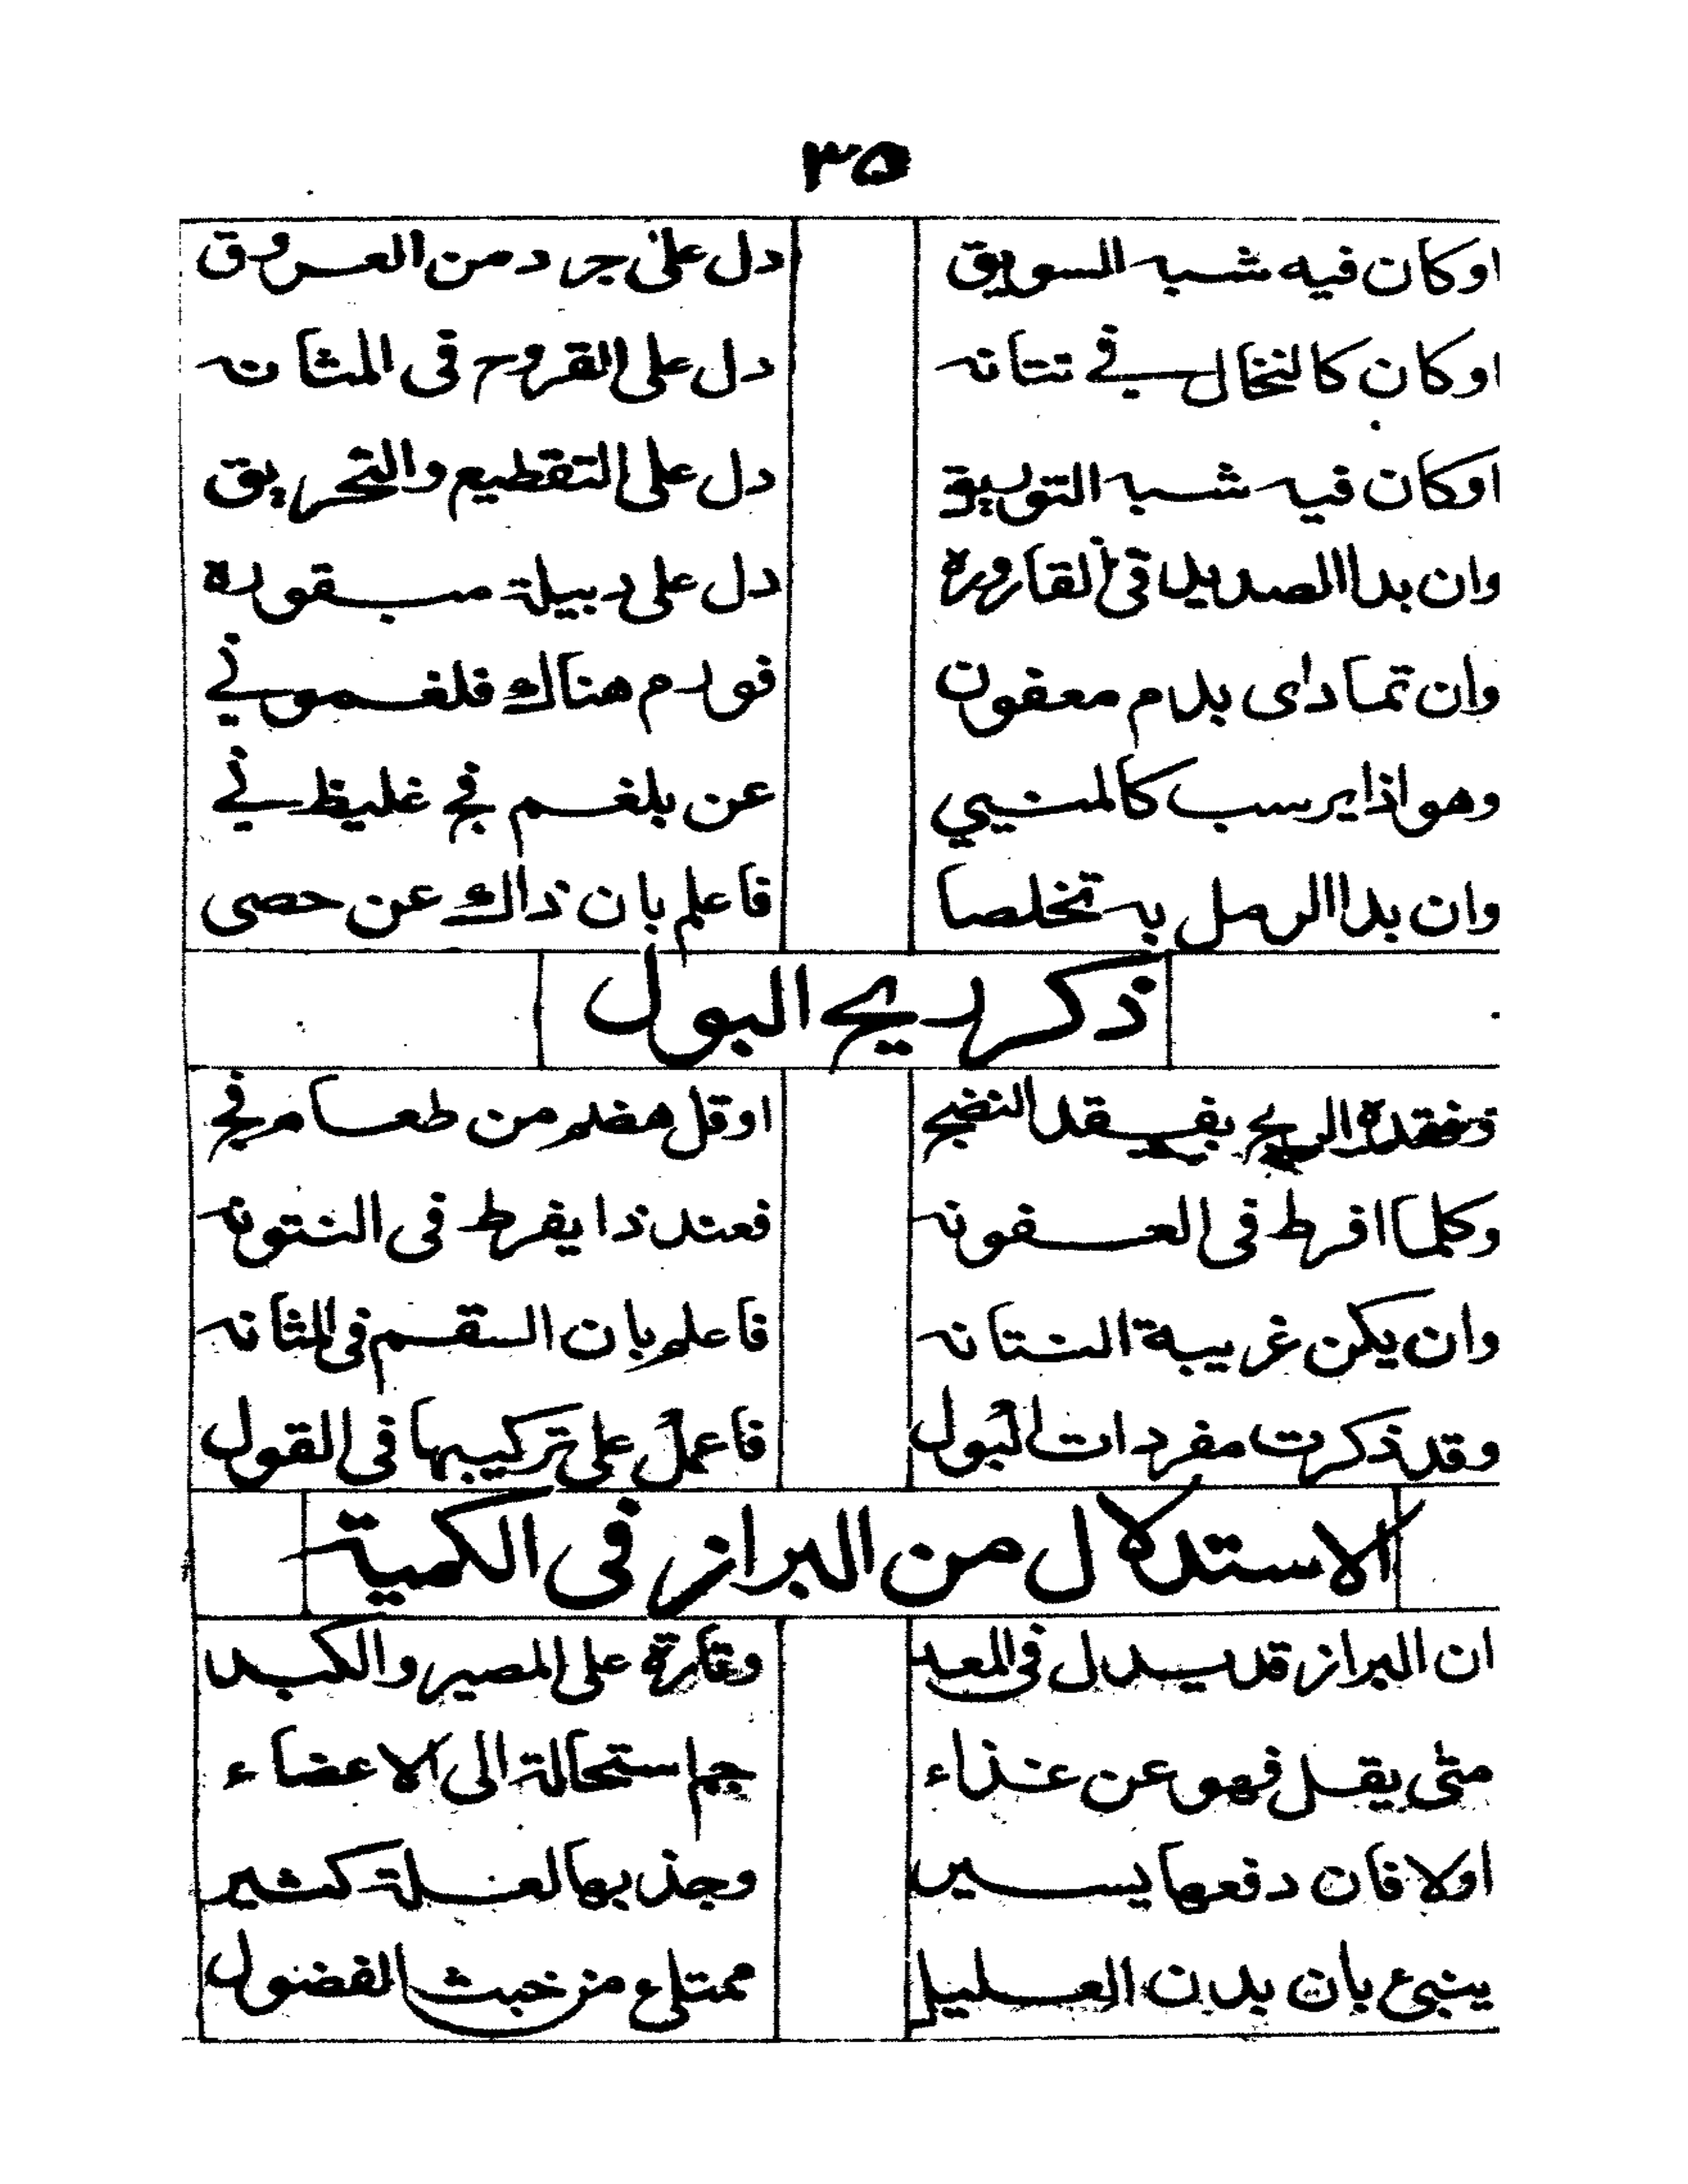 ٣٥
اوكان فيه شبه السويق دل على جرد من العروق
اوكان كالنخال في نتانه دل على القروح فى المثانه
اوكان فيه شبه التوسيق دل على التقطيع والتحريق
وان بدا الصديد فى القاروره دل على دبيلة مبقوره
وان تمادى بدم معفون فورم هناك فلغموني
وهو اذا يرسب كالمنيي عن بلغم فج غليظ ني
وان بدا الرمل به تخلصا فاعلم بان ذاك عن حصى
ذكر ريح البول
وفقده الريح بفقد النضج اوقل هضم من طعام فج
وكلما افرط فى العفونه فعند ذا يفرط فى النتونه
وان يكن غريبة النتانه فاعلم بان السقم فى المثانه
وقد ذكرت مفردات البول فاعمل على تركيبها فى القول
الاستدلال من البراز فى الكمية
ان البراز قد يدل فى المعد وتارة على المصير والكبد
متى يقل فهو عن غذاء جم استحالة الى الاعضاء
اولا فان دفعها يسير وجذبها لعلة كثير
ينبئ بان بدن العليل ممتلئ من خبث الفضول